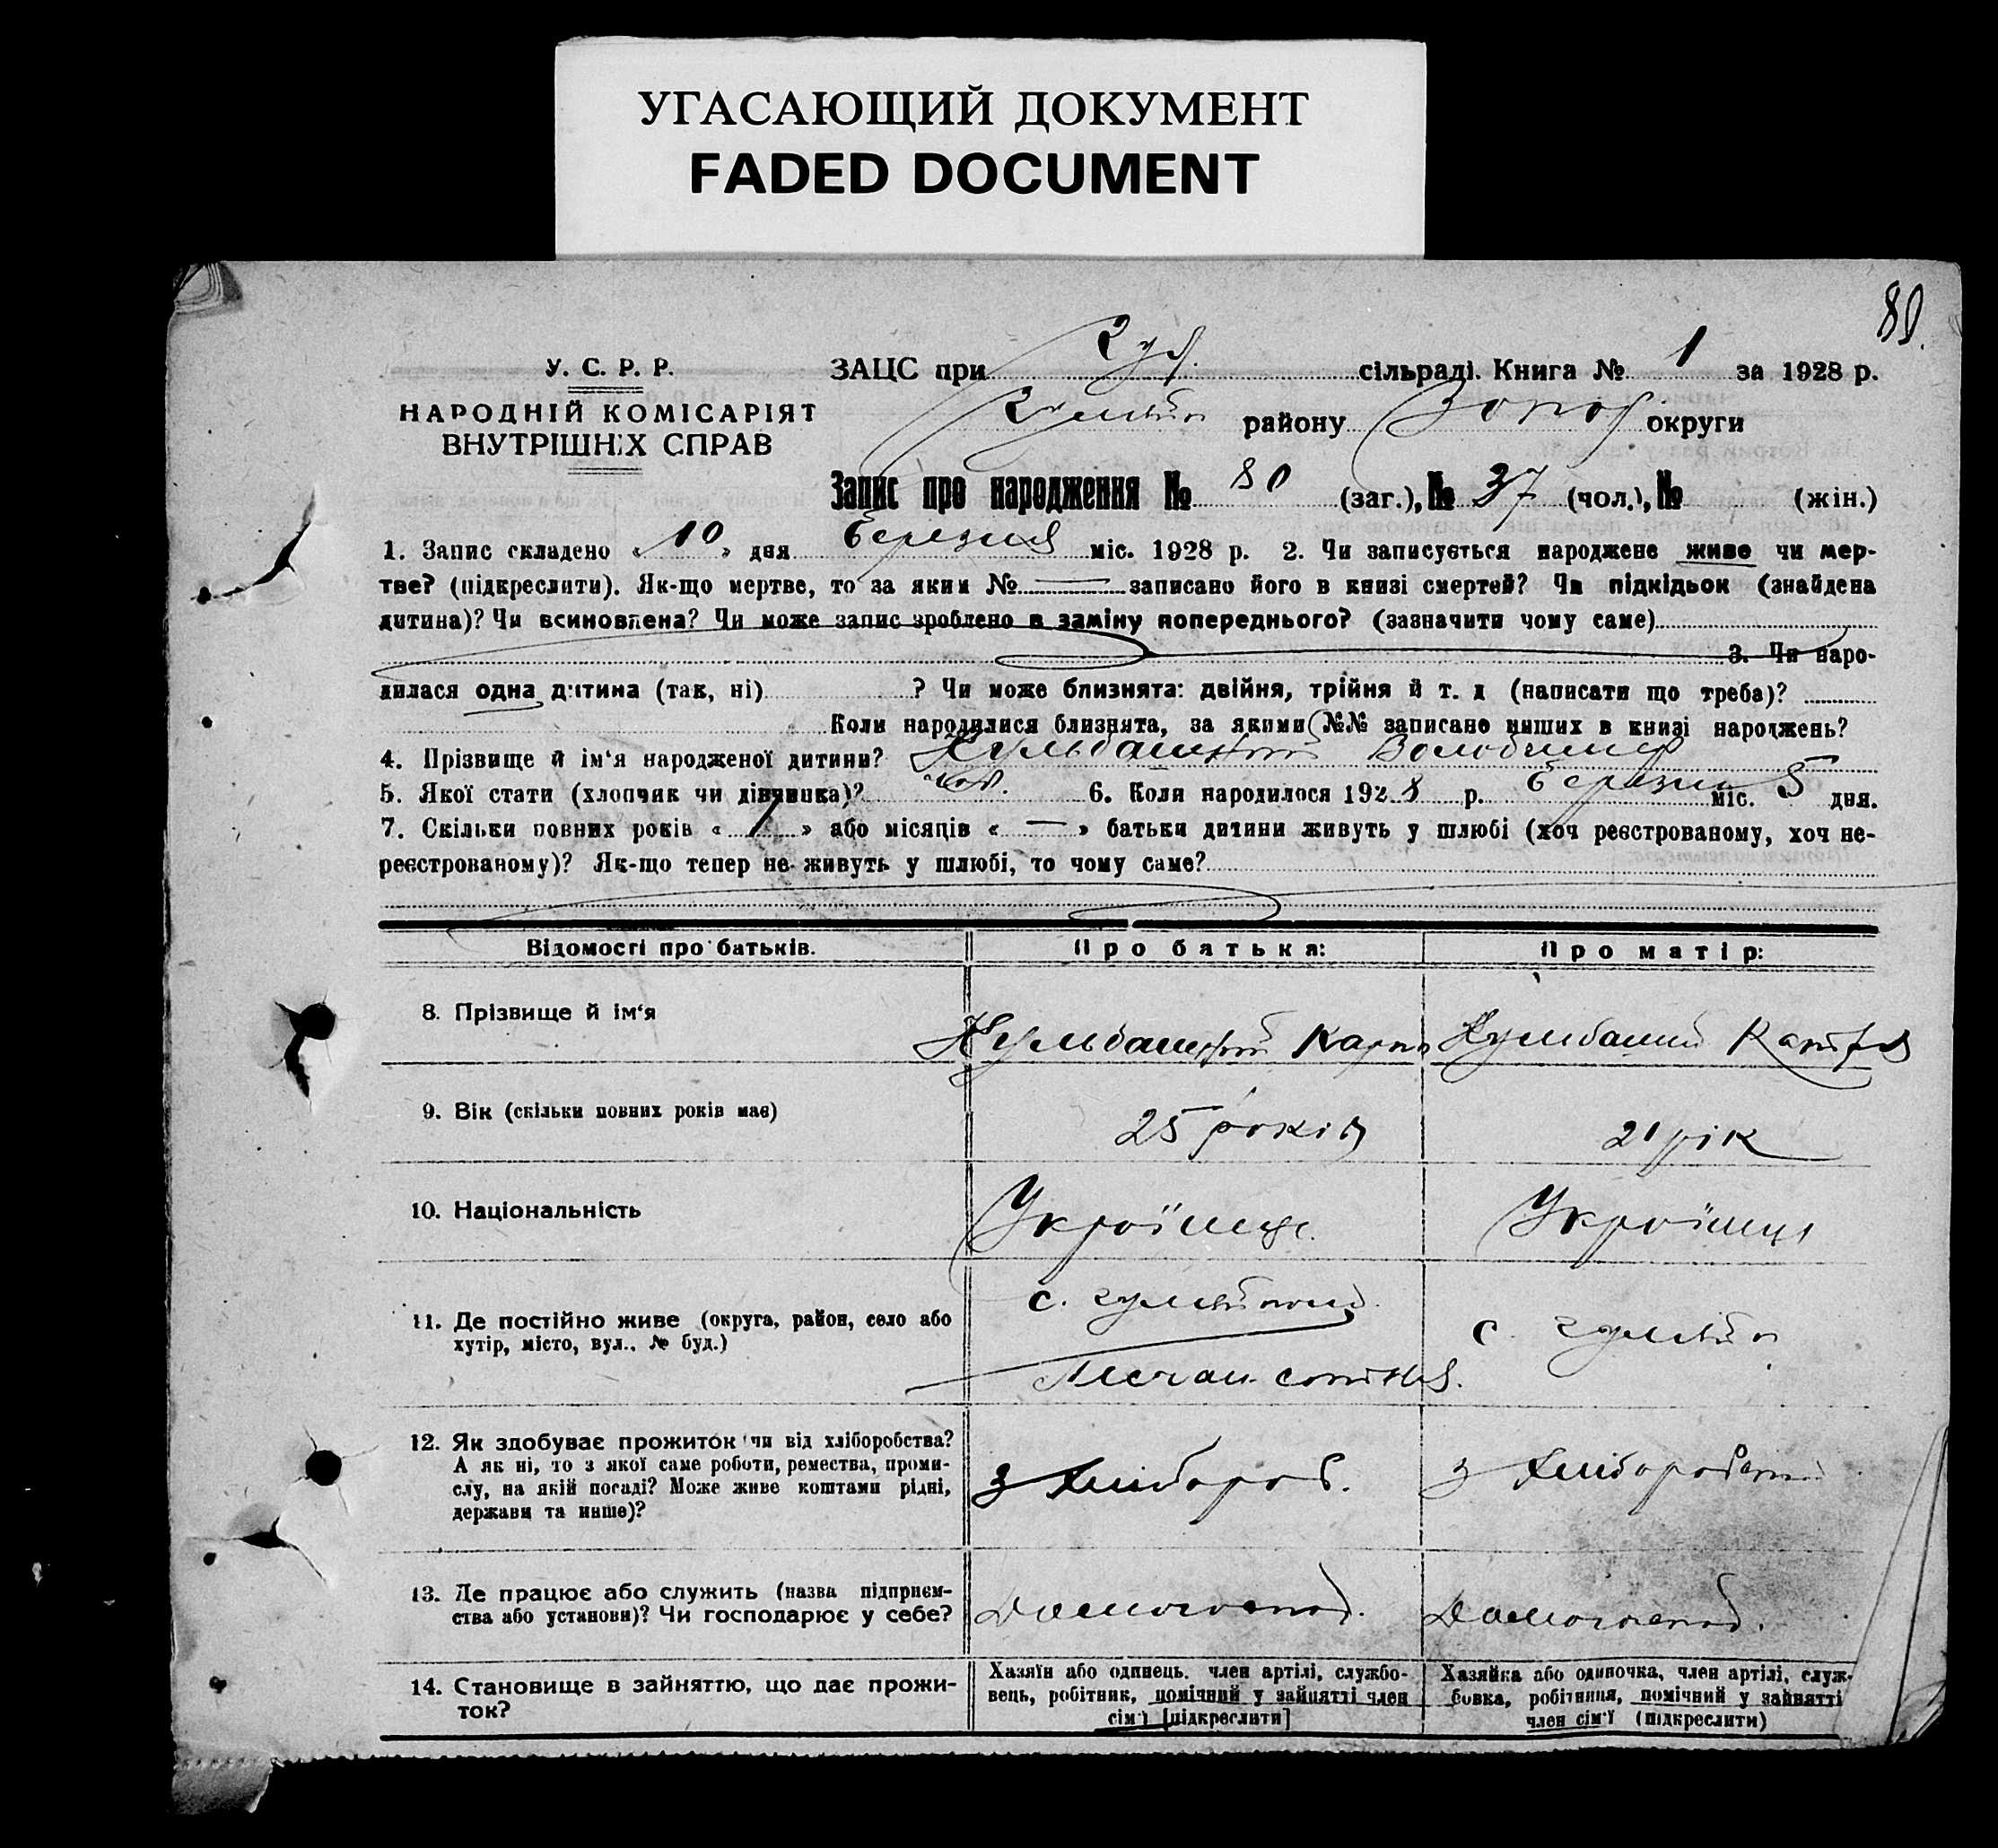 УГАСАЮЩИЙ ДОКУМЕНТ
FADED DOCUMENT
80
У. С. Р. Р.
НАРОДНІЙ КОМІСАРІЯТ
ВНУТРІШНІХ СПРАВ
ЗАЦС при сільраді. Книга № 1 за 1928 р.
району округи
Запис про народження № 80 (заг.), № 37 (чол.), № (жін.)
1. Запис складено « 10 » дня Березня міс. 1928 р. 2. Чи записується народжене живе чи мер-
тве? (підкреслити). Як-що мертве, то за яким № — записано його в книзі смертей? Чи підкідьок (знайдена
дитина)? Чи всиновлена? Чи може запис зроблено в заміну попереднього? (зазначити чому саме)
3. Чи наро-
дилася одна дитина (так, ні) ? Чи може близнята: двійня, трійня й т. д (написати що треба)?
Коли народилися близнята, за якими №№ записано инших в книзі народжень?
4. Прізвище й ім'я народженої дитини? Володимир
5. Якої стати (хлопчик чи дівчинка)? 6. Коли народилося 1928 р. Березня міс. 5 дня.
7. Скільки повних років « 1 » або місяців « — » батьки дитини живуть у шлюбі (хоч реєстрованому, хоч не-
реєстрованому)? Як-що тепер не живуть у шлюбі, то чому саме?
Відомості про батьків. Про батька: Про матір:
8. Прізвище й ім'я
9. Вік (скільки повних років має) 25 років 21 рік
10. Національність Україець. Україиця
11. Де постійно живе (округа, район, село або
хутір, місто, вул., № буд.)
с. с.
12. Як здобуває прожиток чи від хліборобства?
А як ні, то з якої саме роботи, ремества, проми-
слу, на якій посаді? Може живе коштами рідні,
держави та инше)?
з хлібороб. з хліборобства
13. Де працює або служить (назва підприєм-
ства або установи)? Чи господарює у себе?
Домогоспод. Домогоспод.
14. Становище в зайняттю, що дає прожи-
ток?
Хазяїн або одинець, член артілі, службо-
вець, робітник, помічний у зайнятті член
сім'ї [підкреслити]
Хазяйка або одиночка, член артілі, служ-
бовка, робітниця, помічний у зайнятті
член сім'ї (підкреслити)